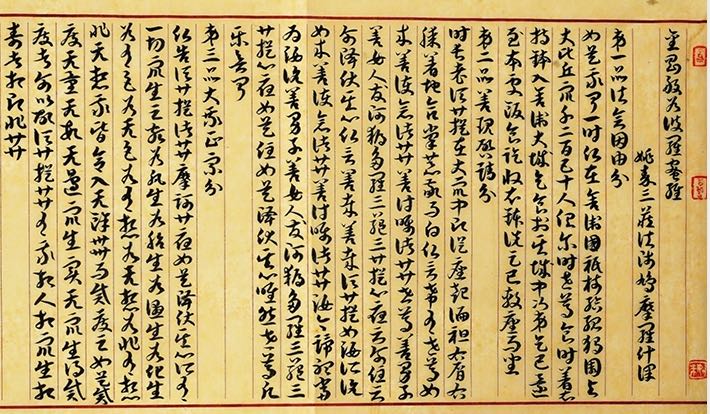 金剛般若波羅蜜經
姚秦三藏法師鳩摩羅什譯
第一品法會因由分
如是我聞一時佛在舍衛國祇樹給孤獨園與
大比丘眾千二百五十人俱爾時世尊食時著衣
持缽入舍衛大城乞食於其城中次第乞已還
至本處飯食訖收衣缽洗足已敷座而坐
第二品善現啟請分
時長老須菩提在大眾中即從座起偏袒右肩右
膝著地合掌恭敬而白佛言希有世尊如
來善護念諸菩薩善付囑諸菩薩世尊善男子
善女人發阿耨多羅三藐三菩提心應云何住云
何降伏其心佛言善哉善哉須菩提如汝所說
如來善護念諸菩薩善付囑諸菩薩汝今諦聽當
為汝說善男子善女人發阿耨多羅三藐三
菩提心應如是住如是降伏其心唯然世尊願
樂欲聞
第三品大乘正宗分
佛告須菩提諸菩薩摩訶薩應如是降伏其心所有
一切眾生之類若卵生若胎生若濕生若化生
若有色若无色若有想若无想若非有想
非无想我皆令入无餘涅槃而滅度之如是滅
度无量无數无邊眾生實无眾生得滅
度者何以故須菩提若菩薩有我相人相眾生相
壽者相即非菩薩